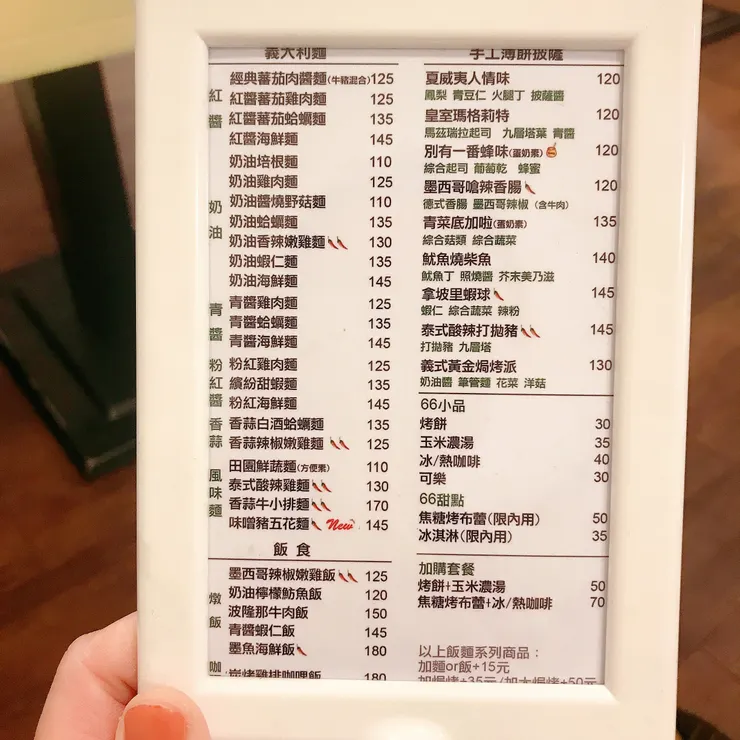 義大利麵
紅醬
經典蕃茄肉醬麵(牛豬混合)125
紅醬蕃茄雞肉麵 125
紅醬蕃茄蛤蠣麵 135
紅醬海鮮麵 145
奶油
奶油培根麵 110
奶油雞肉麵 125
奶油醬燒野菇麵 110
奶油蛤蠣麵 135
奶油香辣嫩雞麵 130
奶油蝦仁麵 135
奶油海鮮麵 145
青醬
青醬雞肉麵 125
青醬蛤蠣麵 135
青醬海鮮麵 145
粉紅醬
粉紅雞肉麵 125
繽紛甜蝦麵 135
粉紅海鮮麵 145
香蒜
香蒜白酒蛤蠣麵 135
香蒜辣椒嫩雞麵 125
風味麵
田園鮮蔬麵(方便素) 110
泰式酸辣雞麵 130
香蒜牛小排麵 170
味噌豬五花麵 New 145
飯食
燉飯
墨西哥辣椒嫩雞飯 125
奶油檸檬魴魚飯 120
波隆那牛肉飯 150
青醬蝦仁飯 145
墨魚海鮮飯 180
咖
炭烤雞排咖哩飯 180
手工薄餅披薩
夏威夷人情味 120
鳳梨 青豆仁 火腿丁 披薩醬
皇室瑪格莉特 120
馬茲瑞拉起司 九層塔葉 青醬
別有一番蜂味(蛋奶素) 120
綜合起司 葡萄乾 蜂蜜
墨西哥嗆辣香腸 120
德式香腸 墨西哥辣椒 (含牛肉)
青菜底加啦(蛋奶素) 135
綜合菇類 綜合蔬菜
魷魚燒柴魚 140
魷魚丁 照燒醬 芥末美乃滋
拿坡里蝦球 145
蝦仁 綜合蔬菜 辣粉
泰式酸辣打拋豬 145
打拋豬 九層塔
義式黃金焗烤派 130
奶油醬 筆管麵 花菜 洋菇
66小品
烤餅 30
玉米濃湯 35
冰/熱咖啡 40
可樂 30
66甜點
焦糖烤布蕾(限內用) 50
冰淇淋(限內用) 35
加購套餐
烤餅+玉米濃湯 50
焦糖烤布蕾+冰/熱咖啡 70
以上飯麵系列商品：
加麵or飯+15元
加焗烤+35元/加大焗烤+50元